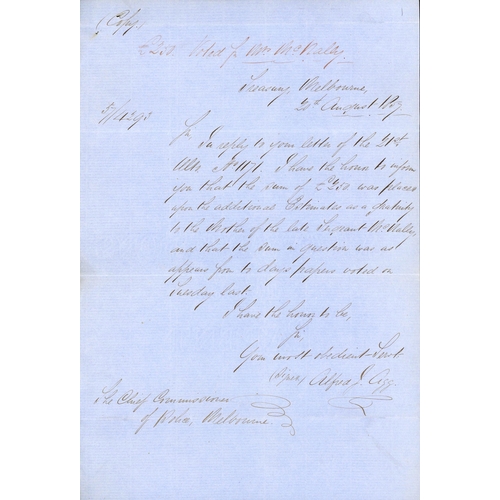 (Copy)
£250 Voted for Mrs McNally
Treasury, Melbourne,
20th August 1857
57/4293
Sir,
In reply to your letter of the 21st
Ulto I have the honor to inform
you that the sum of £250 was placed
upon the additional Estimates as a gratuity
to the Mother of the late Sergeant McNally
and that the sum in question was as
appears from to days papers voted on
Tuesday last.
I have the honor to be,
Sir,
Your most obedient Servt
(Signed) Alfred J.
The Chief Commissioner
of Police, Melbourne